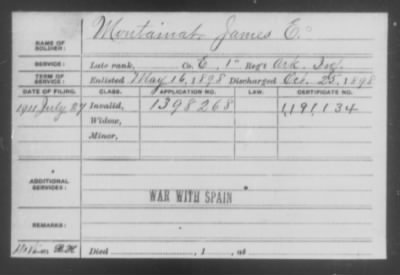 NAME OF SOLDIER: Montainat James E.
SERVICE: Late rank, Co. E, 1" Reg't Ark. Inf.
TERM OF SERVICE: Enlisted May 16, 1898 Discharged Oct. 25, 1898
DATE OF FILING. CLASS. APPLICATION NO. LAW. CERTIFICATE NO.
1911 July 27 Invalid, 1398268 1,191,134
Widow,
Minor,
ADDITIONAL SERVICES:
WAR WITH SPAIN
REMARKS:
Died , 1 , at